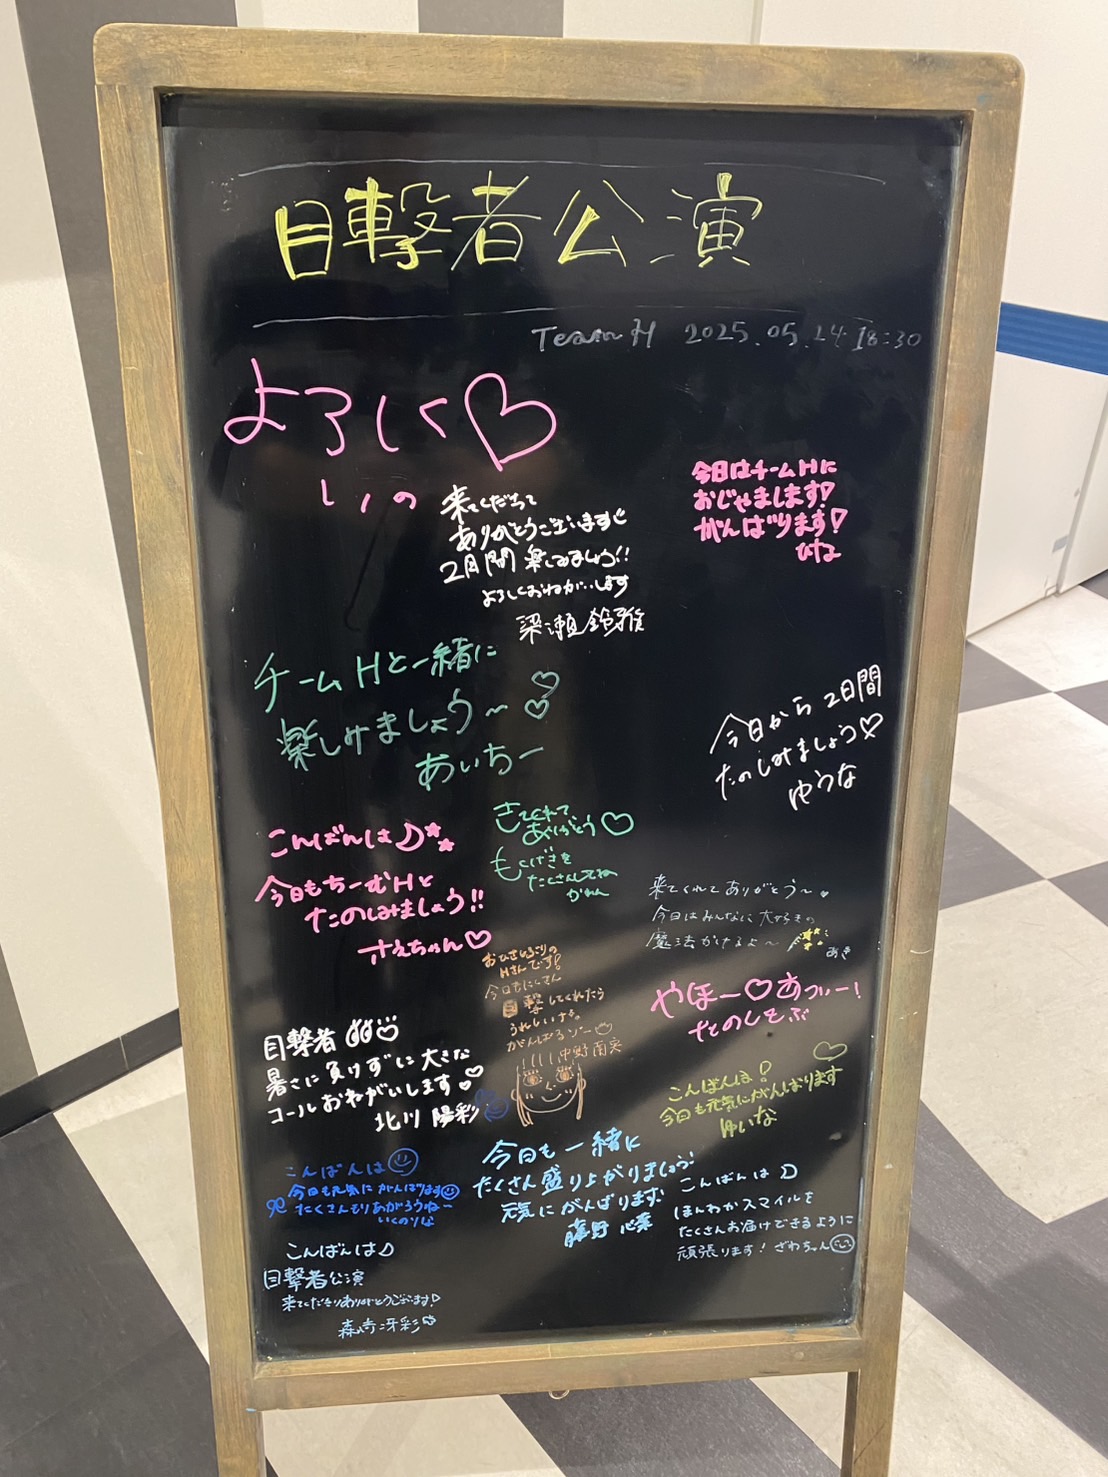 目撃者公演
Team H 2025.05.24 18:30
よろしく♡
いの
来てくださって
ありがとうございます
2日間 楽しみましょう!!
よろしくおねがいします
梁瀬 鈴雅
今日はチームHに
おじゃまします!
がんばります!
ひな
チームHと一緒に
楽しみましょう〜♡♡
あいちー
今日から2日間
たのしみましょう♡
ゆうな
こんばんは♪
今日もちーむHと
たのしみましょう!!
さえちゃん♡
きてくれて
ありがとう♡
もくげきを
たくさんしてね
かれん
来てくれてありがとう〜
今日はみんなに大好きの
魔法かけるよ〜
あき
おひさしぶりの
Hさんです!
今日もたくさん
目撃してくれたら
うれしいすよ。
がんばるゾー
中野南実
やほー♡あつぃー!
たのしもぶ
目撃者
暑さに負けずに大きな
コールおねがいします♡
北川 陽彩
こんばんは!
今日も元気にがんばります
ゆいな
こんばんは
今日も元気にがんばります
たくさんもりあがろうねー
いくのりな
今日も一緒に
たくさん盛り上がりましょう!
元気にがんばります
藤野 心葉
こんばんは♪
ほんわかスマイルを
たくさんお届けできるように
頑張ります! ざわちゃん
こんばんは♪
目撃者公演
来てくださりありがとうございます!
森﨑冴彩